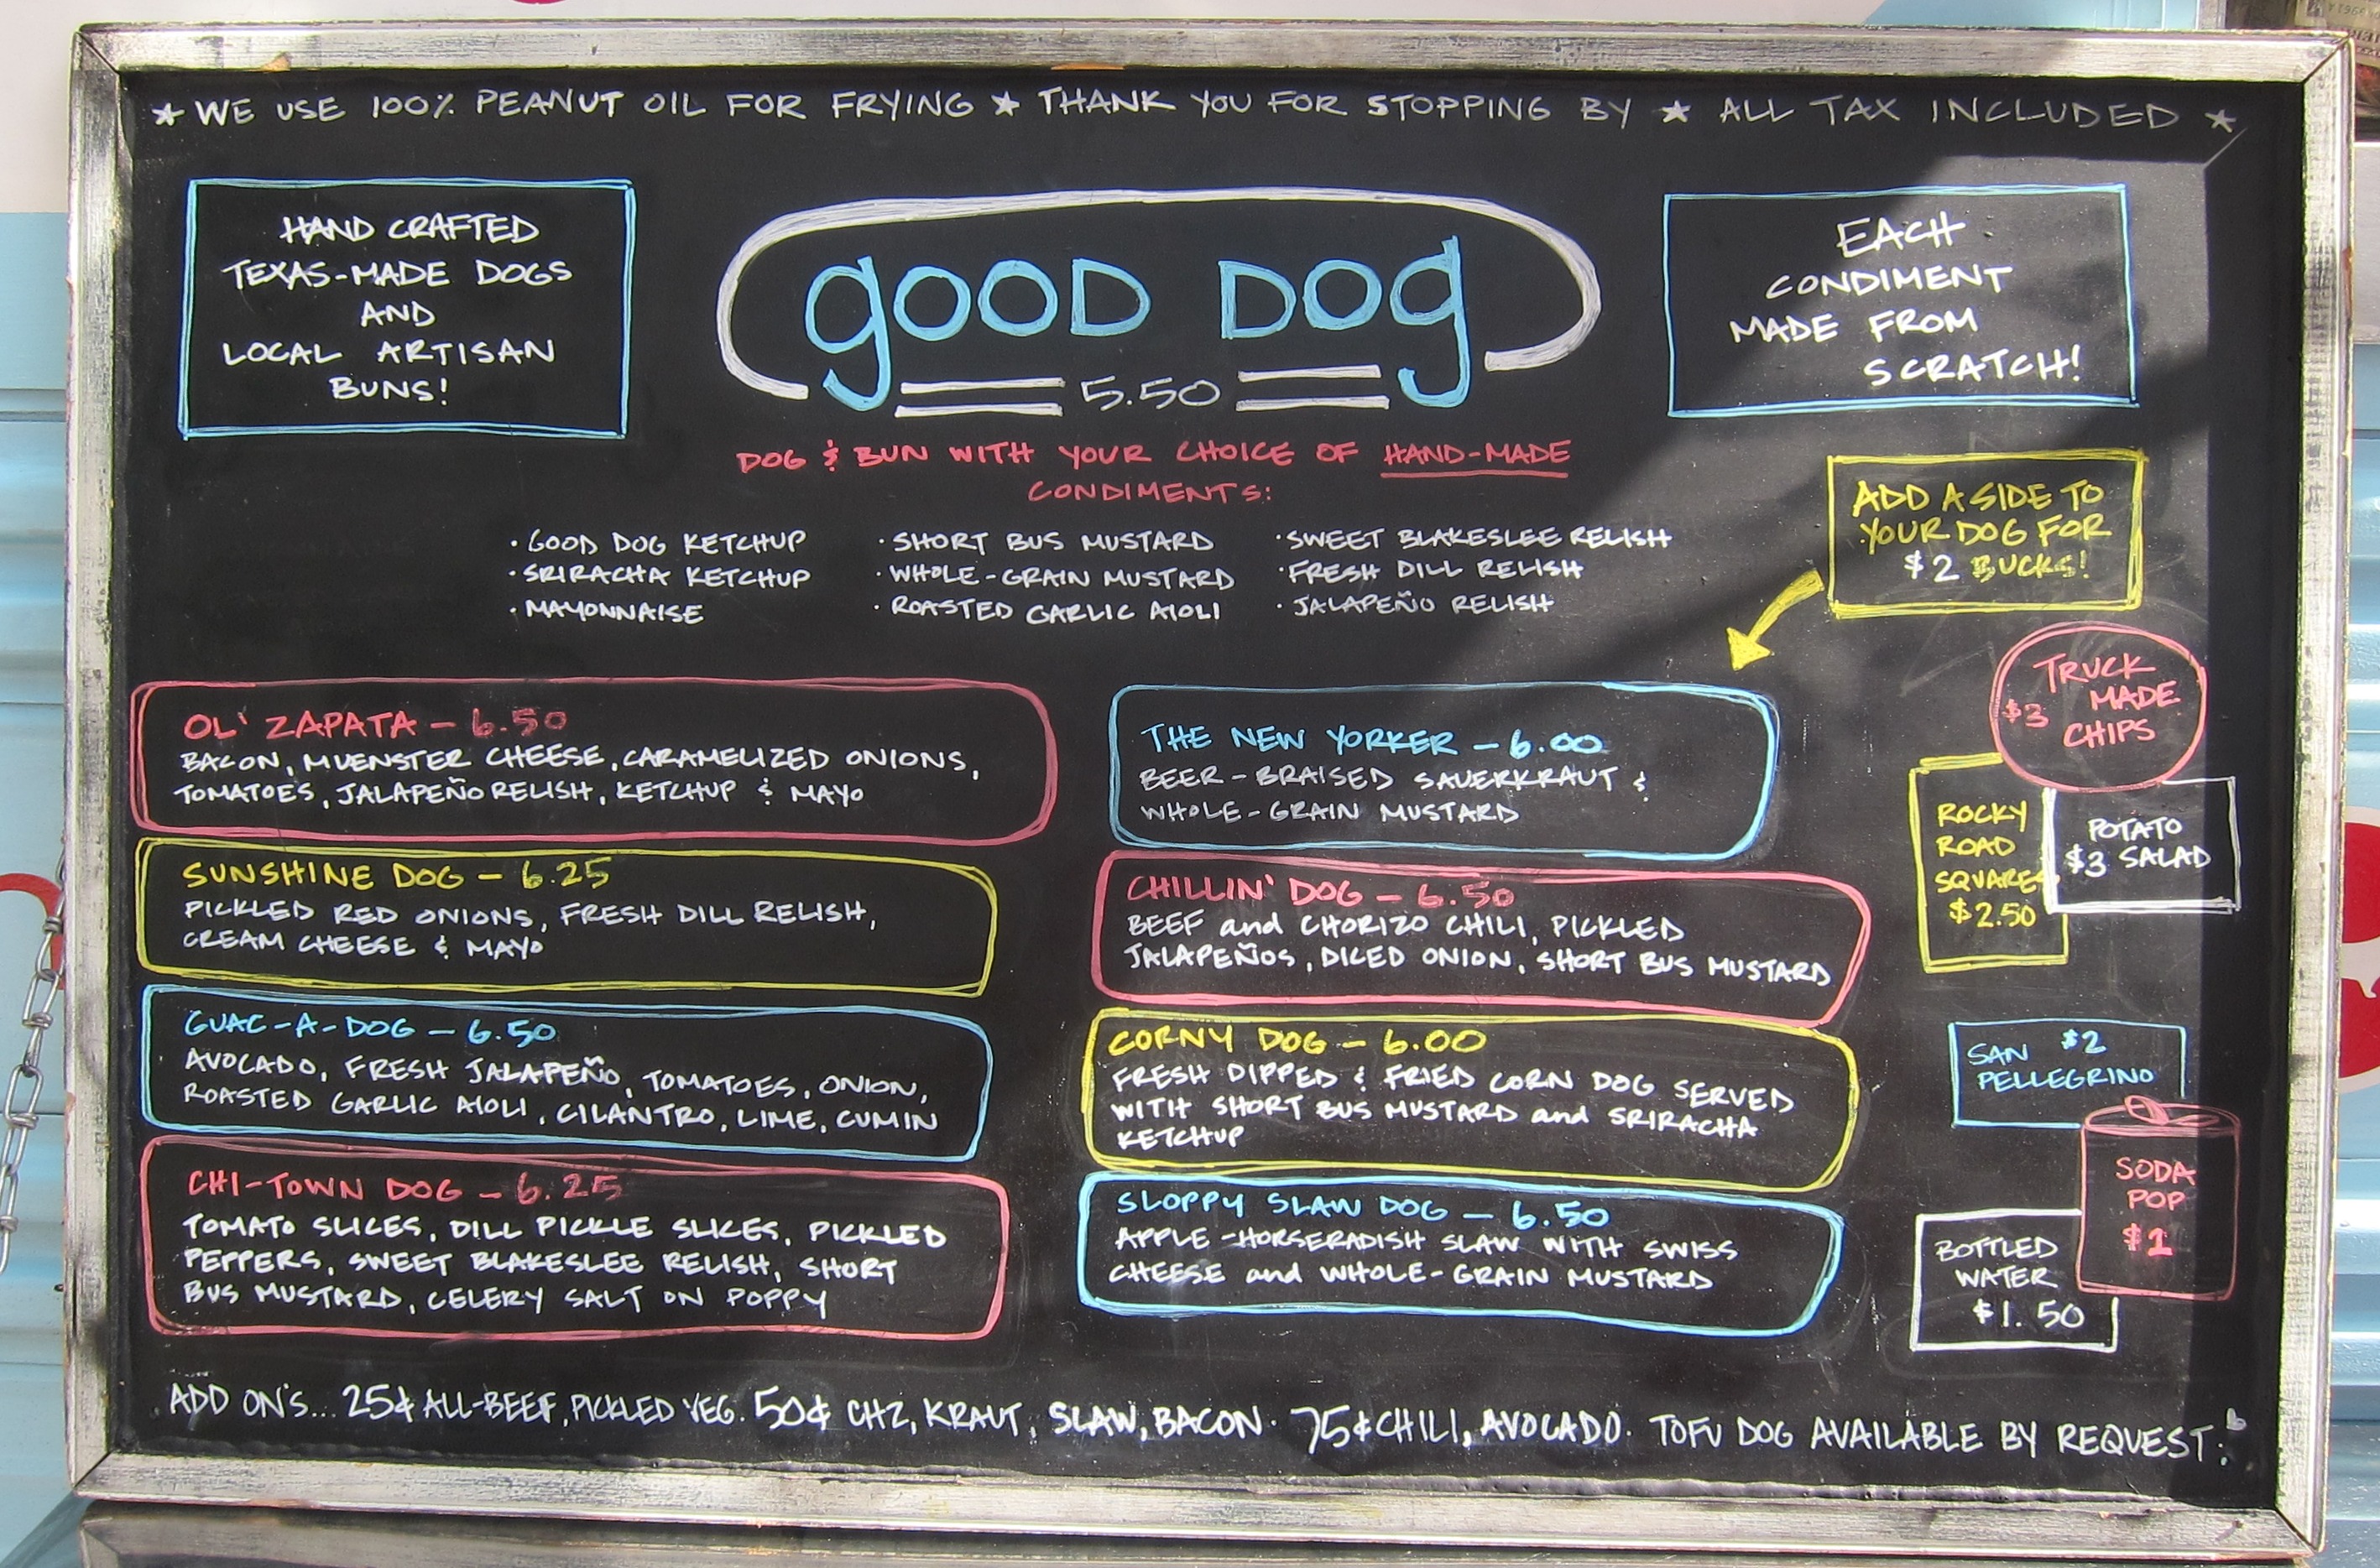 ★ WE USE 100% PEANUT OIL FOR FRYING ★ THANK YOU FOR STOPPING BY ★ ALL TAX INCLUDED ★
HAND CRAFTED
TEXAS-MADE DOGS
AND
LOCAL ARTISAN
BUNS!
gOOD DOg
5.50
EACH
CONDIMENT
MADE FROM
SCRATCH!
DOG & BUN WITH YOUR CHOICE OF HAND-MADE
CONDIMENTS:
• GOOD DOG KETCHUP
• SRIRACHA KETCHUP
• MAYONNAISE
• SHORT BUS MUSTARD
• WHOLE-GRAIN MUSTARD
• ROASTED GARLIC AIOLI
• SWEET BLAKESLEE RELISH
• FRESH DILL RELISH
• JALAPEÑO RELISH
ADD A SIDE TO
YOUR DOG FOR
$2 BUCKS!
OL' ZAPATA - 6.50
BACON, MUENSTER CHEESE, CARAMELIZED ONIONS,
TOMATOES, JALAPEÑO RELISH, KETCHUP & MAYO
SUNSHINE DOG - 6.25
PICKLED RED ONIONS, FRESH DILL RELISH,
CREAM CHEESE & MAYO
GUAC-A-DOG - 6.50
AVOCADO, FRESH JALAPEÑO, TOMATOES, ONION,
ROASTED GARLIC AIOLI, CILANTRO, LIME, CUMIN
CHI-TOWN DOG - 6.25
TOMATO SLICES, DILL PICKLE SLICES, PICKLED
PEPPERS, SWEET BLAKESLEE RELISH, SHORT
BUS MUSTARD, CELERY SALT ON POPPY
THE NEW YORKER - 6.00
BEER-BRAISED SAUERKRAUT &
WHOLE-GRAIN MUSTARD
CHILLIN' DOG - 6.50
BEEF and CHORIZO CHILI, PICKLED
JALAPEÑOS, DICED ONION, SHORT BUS MUSTARD
CORNY DOG - 6.00
FRESH DIPPED & FRIED CORN DOG SERVED
WITH SHORT BUS MUSTARD and SRIRACHA
KETCHUP
SLOPPY SLAW DOG - 6.50
APPLE-HORSERADISH SLAW WITH SWISS
CHEESE and WHOLE-GRAIN MUSTARD
TRUCK
$3 MADE
CHIPS
ROCKY
ROAD
SQUARES
$2.50
POTATO
$3 SALAD
SAN $2
PELLEGRINO
SODA
POP
$1
BOTTLED
WATER
$1.50
ADD ON'S... 25¢ ALL-BEEF, PICKLED VEG. 50¢ CHZ, KRAUT, SLAW, BACON. 75¢ CHILI, AVOCADO. TOFU DOG AVAILABLE BY REQUEST.